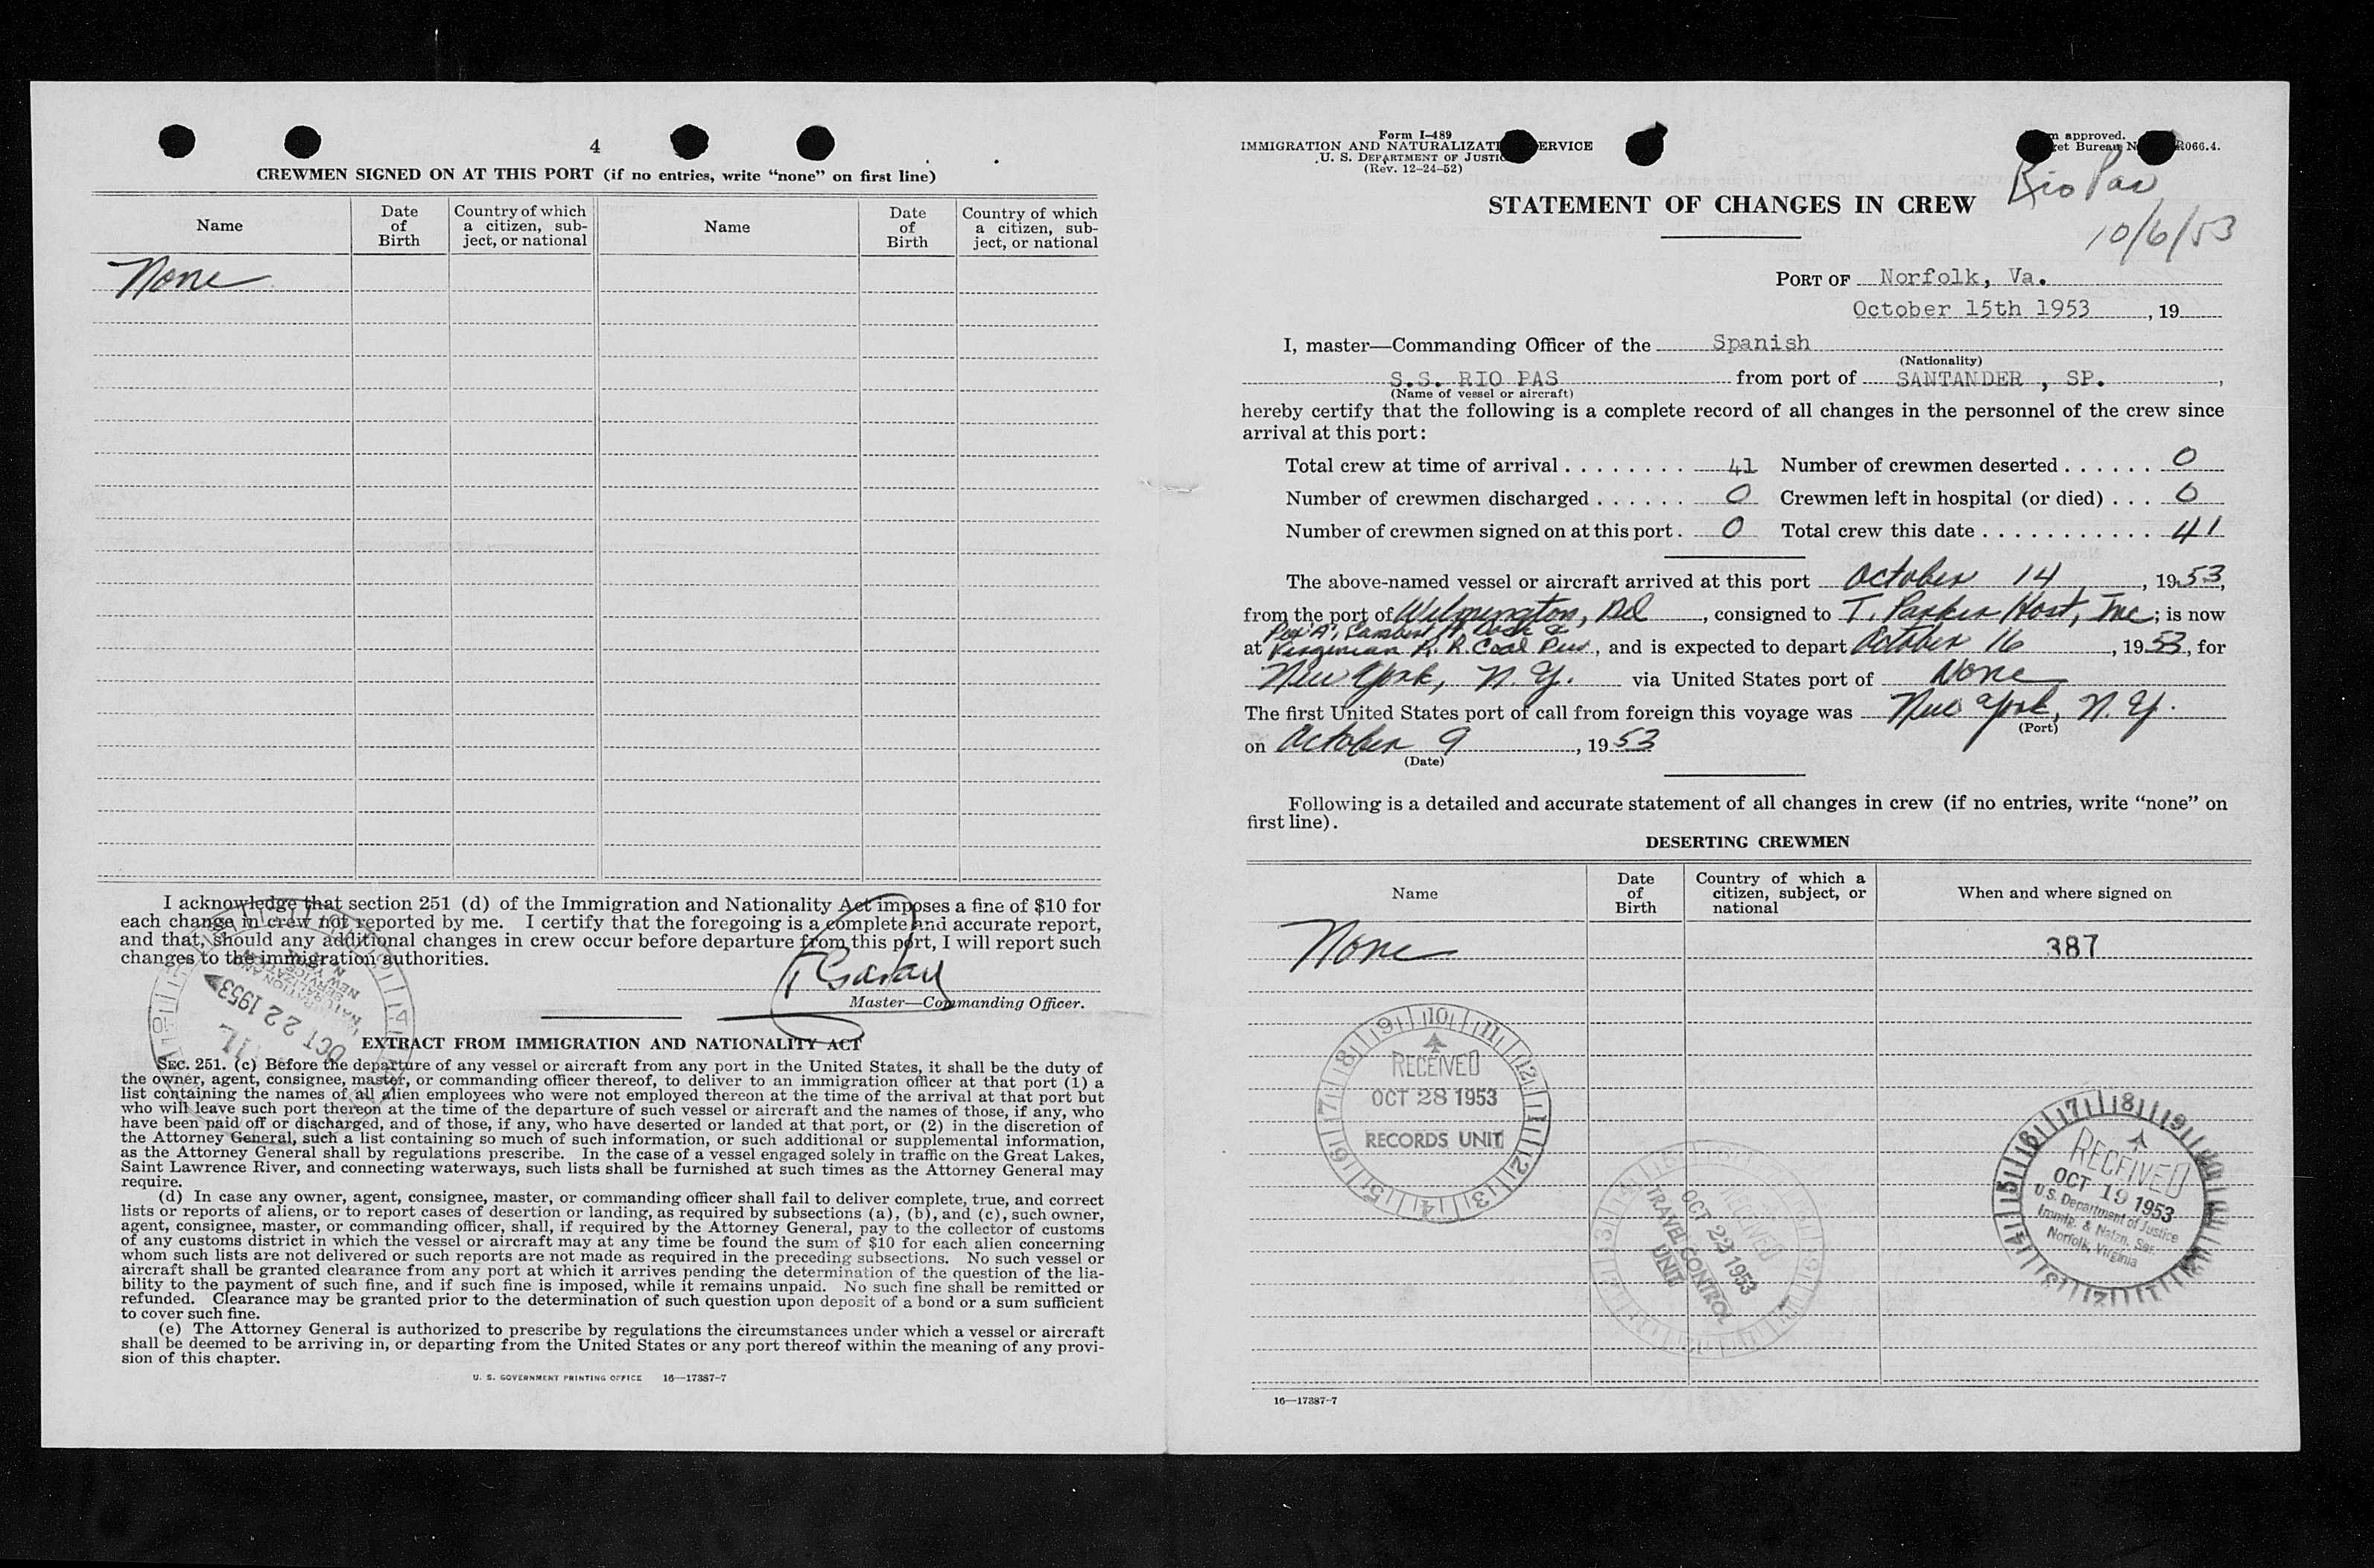 4
CREWMEN SIGNED ON AT THIS PORT (if no entries, write “none” on first line)
Name
Date of Birth
Country of which a citizen, sub-ject, or national
Name
Date of Birth
Country of which a citizen, sub-ject, or national
None
I acknowledge that section 251 (d) of the Immigration and Nationality Act imposes a fine of $10 for
each change in crew not reported by me. I certify that the foregoing is a complete and accurate report,
and that, should any additional changes in crew occur before departure from this port, I will report such
changes to the immigration authorities.
Master—Commanding Officer.
OCT 22 1953
EXTRACT FROM IMMIGRATION AND NATIONALITY ACT
SEC. 251. (c) Before the departure of any vessel or aircraft from any port in the United States, it shall be the duty of
the owner, agent, consignee, master, or commanding officer thereof, to deliver to an immigration officer at that port (1) a
list containing the names of all alien employees who were not employed thereon at the time of the arrival at that port but
who will leave such port thereon at the time of the departure of such vessel or aircraft and the names of those, if any, who
have been paid off or discharged, and of those, if any, who have deserted or landed at that port, or (2) in the discretion of
the Attorney General, such a list containing so much of such information, or such additional or supplemental information,
as the Attorney General shall by regulations prescribe. In the case of a vessel engaged solely in traffic on the Great Lakes,
Saint Lawrence River, and connecting waterways, such lists shall be furnished at such times as the Attorney General may
require.
(d) In case any owner, agent, consignee, master, or commanding officer shall fail to deliver complete, true, and correct
lists or reports of aliens, or to report cases of desertion or landing, as required by subsections (a), (b), and (c), such owner,
agent, consignee, master, or commanding officer, shall, if required by the Attorney General, pay to the collector of customs
of any customs district in which the vessel or aircraft may at any time be found the sum of $10 for each alien concerning
whom such lists are not delivered or such reports are not made as required in the preceding subsections. No such vessel or
aircraft shall be granted clearance from any port at which it arrives pending the determination of the question of the lia-
bility to the payment of such fine, and if such fine is imposed, while it remains unpaid. No such fine shall be remitted or
refunded. Clearance may be granted prior to the determination of such question upon deposit of a bond or a sum sufficient
to cover such fine.
(e) The Attorney General is authorized to prescribe by regulations the circumstances under which a vessel or aircraft
shall be deemed to be arriving in, or departing from the United States or any port thereof within the meaning of any provi-
sion of this chapter.
U. S. GOVERNMENT PRINTING OFFICE 16—17387-7
Form I-489
IMMIGRATION AND NATURALIZATI ERVICE
U. S. DEPARTMENT OF JUSTIC
(Rev. 12-24-52)
m approved.
et Bureau N R066.4.
Rio Pas
10/6/53
STATEMENT OF CHANGES IN CREW
PORT OF Norfolk, Va.
October 15th 1953, 19
I, master—Commanding Officer of the Spanish
(Nationality)
S.S. RIO PAS from port of SANTANDER , SP.,
(Name of vessel or aircraft)
hereby certify that the following is a complete record of all changes in the personnel of the crew since
arrival at this port:
Total crew at time of arrival . . . . . . . . 41 Number of crewmen deserted . . . . . . 0
Number of crewmen discharged . . . . . . 0 Crewmen left in hospital (or died) . . . 0
Number of crewmen signed on at this port . 0 Total crew this date . . . . . . . . . . . 41
The above-named vessel or aircraft arrived at this port October 14, 1953,
from the port of Wilmington, Del, consigned to T. Parker Host, Inc; is now
Pier "A", Lambert Pt Dock &
at Virginian R. R. Coal Pier, and is expected to depart October 16, 1953, for
New York, N. Y. via United States port of None
The first United States port of call from foreign this voyage was New York, N. Y.
(Port)
on October 9, 1953
(Date)
Following is a detailed and accurate statement of all changes in crew (if no entries, write “none” on
first line).
DESERTING CREWMEN
Name
Date of Birth
Country of which a citizen, subject, or national
When and where signed on
None
387
RECEIVED
OCT 28 1953
RECORDS UNIT
RECEIVED
OCT 22 1953
TRAVEL CONTROL
UNIT
RECEIVED
OCT 19 1953
U.S. Department of Justice
Immig. & Natzn. Ser.
Norfolk, Virginia
16—17387-7